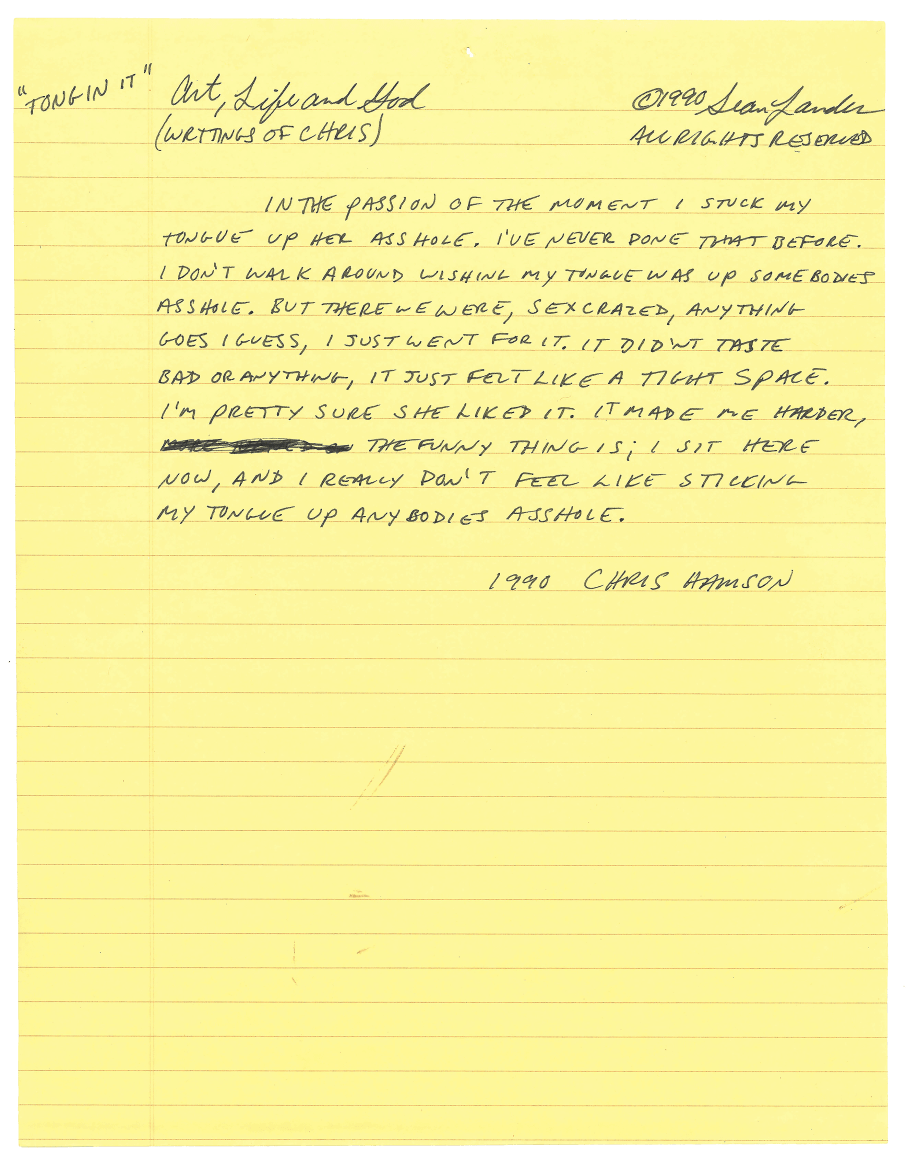 "TONGIN IT"
Art, Life and God
(WRITINGS OF CHRIS)
©1990 Sean Landers
ALL RIGHTS RESERVED
IN THE PASSION OF THE MOMENT I STUCK MY
TONGUE UP HER ASSHOLE. I'VE NEVER DONE THAT BEFORE.
I DON'T WALK AROUND WISHING MY TONGUE WAS UP SOMEBODIES
ASSHOLE. BUT THERE WE WERE, SEXCRAZED, ANYTHING
GOES I GUESS, I JUST WENT FOR IT. IT DID'NT TASTE
BAD OR ANYTHING, IT JUST FELT LIKE A TIGHT SPACE.
I'M PRETTY SURE SHE LIKED IT. IT MADE ME HARDER,
THE FUNNY THING IS; I SIT HERE
NOW, AND I REALLY DON'T FEEL LIKE STICKING
MY TONGUE UP ANYBODIES ASSHOLE.
1990 CHRIS HAMSON